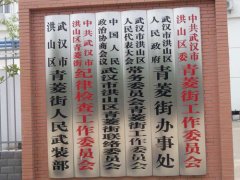 中共武汉市
洪山区委
青菱街工作委员会
武汉市洪山区
人民政府
青菱街办事处
武汉市洪山区
人民代表大会
常务委员会青菱街工作委员会
中国人民
政治协商会议
武汉市洪山区青菱街联络委员会
中共武汉市
洪山区青菱街
纪律检查工作委员会
武汉市
洪山区
青菱街人民武装部